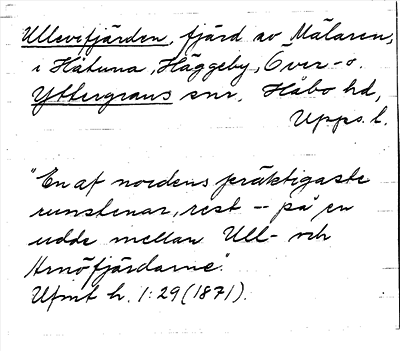 Ullevifjärden, fjärd av Mälaren,
i Håtuna, Häggeby, Över- o.
Yttergrans snr, Håbo hd,
Upps. l.
"En af nordens präktigaste
runstenar, rest -- på en
udde mellan Ull- och
Arnöfjärdarne".
Ufmt h. 1:29 (1871).